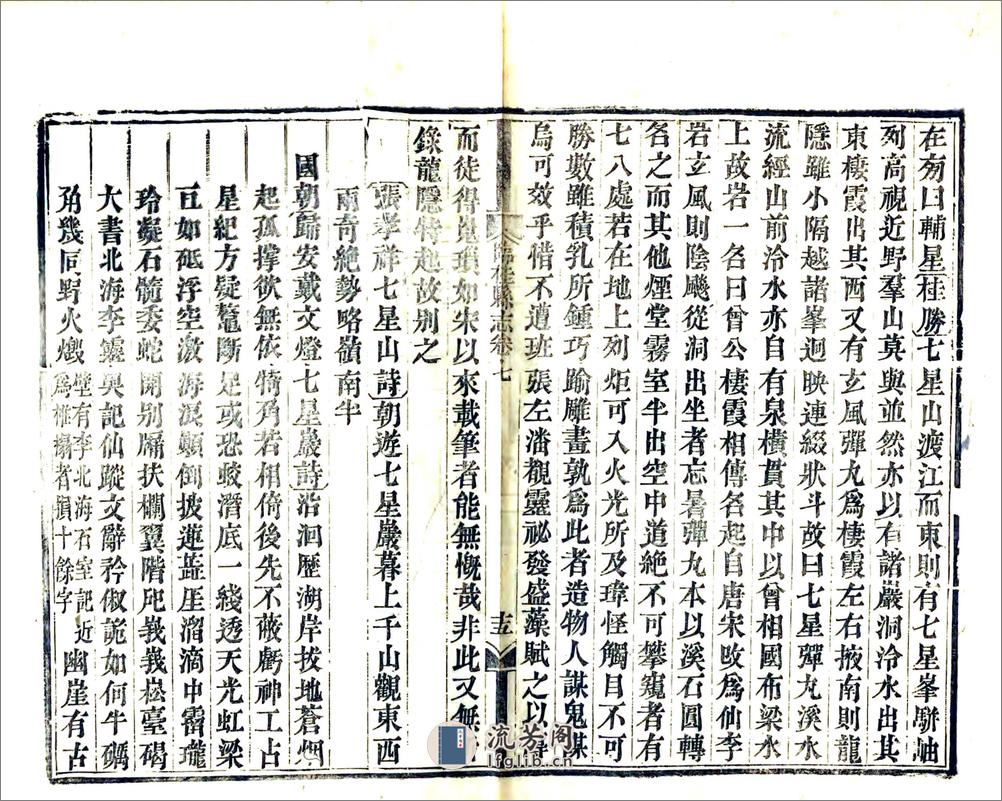 在旁曰輔星桂勝七星山渡江而東則有七星峯駢岫
列高視近野羣山莫與並然亦以有諸巖洞冷水出其
東棲霞出其西又有玄風彈丸爲棲霞左右掖南則龍
隱雖小隔越諸峯迴映連綴狀斗故曰七星彈丸溪水
流經山前冷水亦自有泉橫貫其中以曾相國布梁水
上故岩一名曰曾公棲霞相傳名起自唐宋改爲仙李
岩玄風則陰颷從洞出坐者忘暑彈丸本以溪石圓轉
名之而其他煙堂霧室半出空中道絶不可攀窺者有
七八處若在地上列炬可入火光所及瑋怪觸目不可
勝數雖積乳所鍾巧踰雕畫孰爲此者造物人謀鬼謀
烏可效乎惜不遭班張左潘觀靈祕發盛藻賦之以
臨桂縣志卷七
十五
而徒得鬼瑣如宋以來載筆者能無慨哉非此又無
錄龍隱特起故别之
張孝祥七星山詩朝遊七星巖暮上千山觀東西
兩奇絶勢略嶺南半
國朝歸安戴文燈七星巖詩沿洄歷湖岸拔地蒼烟
起孤撑欲無依犄角若相倚後先不蔽虧神工占
星紀方疑鼇斷足或恐蛟潛底一綫透天光虹梁
亙如砥浮空激海浪顛倒披蓮蘂厓溜滴中霤瓏
玲凝石髓委蛇開别牖扶欄翼階戺峩峩崧臺碣
大書北海李靈輿記仙蹤文辭矜俶詭如何牛礪
角幾同野火燬壁有李北海石室記近爲椎搨者損十餘字幽崖有古
流芳阁
lfglib.cn